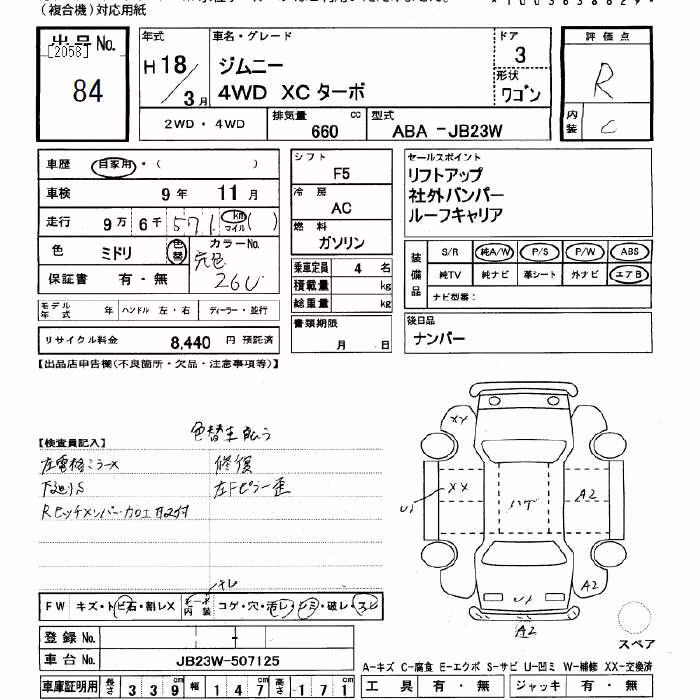 (複合機)対応用紙
出品No.
[2058]
84
年式
H18/3月
車名・グレード
ジムニー
4WD XCターボ
ドア
3
形状
ワゴン
評価点
R
内装
C
2WD・4WD
排気量
660 cc
型式
ABA -JB23W
車歴 自家用・( )
車検 9年 11月
走行 9万 6千 571 km マイル ( )
色 ミドリ 色替 カラーNo.
元色 26U
保証書 有・無
モデル年式 年 ハンドル 左・右 ディーラー・並行
リサイクル料金 8,440 円 預託済
シフト
F5
冷房
AC
燃料
ガソリン
乗車定員 4 名
積載量 kg
総重量 kg
書類期限
月 日
セールスポイント
リフトアップ
社外バンパー
ルーフキャリア
装備品
S/R 純A/W P/S P/W ABS
純TV 純ナビ 革シート 外ナビ エアB
ナビ型番:
後日品
ナンバー
【出品店申告欄(不良箇所・欠品・注意事項等)】
【検査員記入】
色替
左電格ミラーX
修復
下廻りS
左Fピラー歪
XX
XX
U1
ハゲ
A2
A2
U1
A2
キレ
FW キズ・トビ石・割レX
内装 コゲ・穴・汚レ・シミ・破レ・スレ
スペア
登録No. -
車台No. JB23W-507125
A-キズ C-腐食 E-エクボ S-サビ U-凹ミ W-補修 XX-交換済
車庫証明用 長さ 339 cm 幅 147 cm 高さ 171 cm
工具 有・無 ジャッキ 有・無